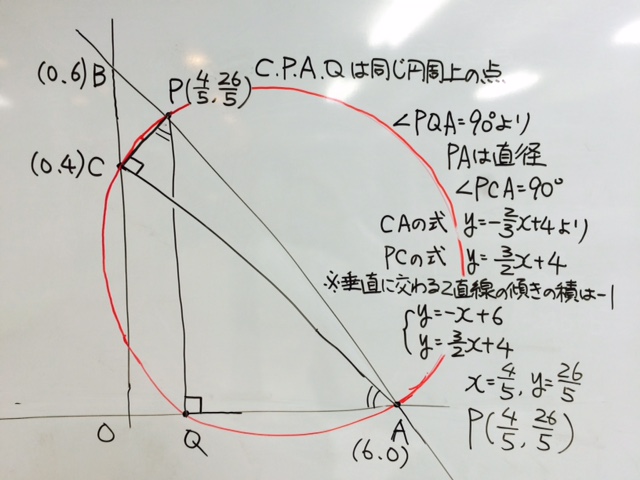 C.P.A.Qは同じ円周上の点
(0.6)B
P(4/5, 26/5)
∠PQA=90°より
PAは直径
∠PCA=90°
(0.4)C
CAの式 y=-2/3x+4より
PCの式 y=3/2x+4
※垂直に交わる2直線の傾きの積は-1
{y=-x+6
y=3/2x+4
x=4/5, y=26/5
P(4/5, 26/5)
O
Q
A
(6.0)